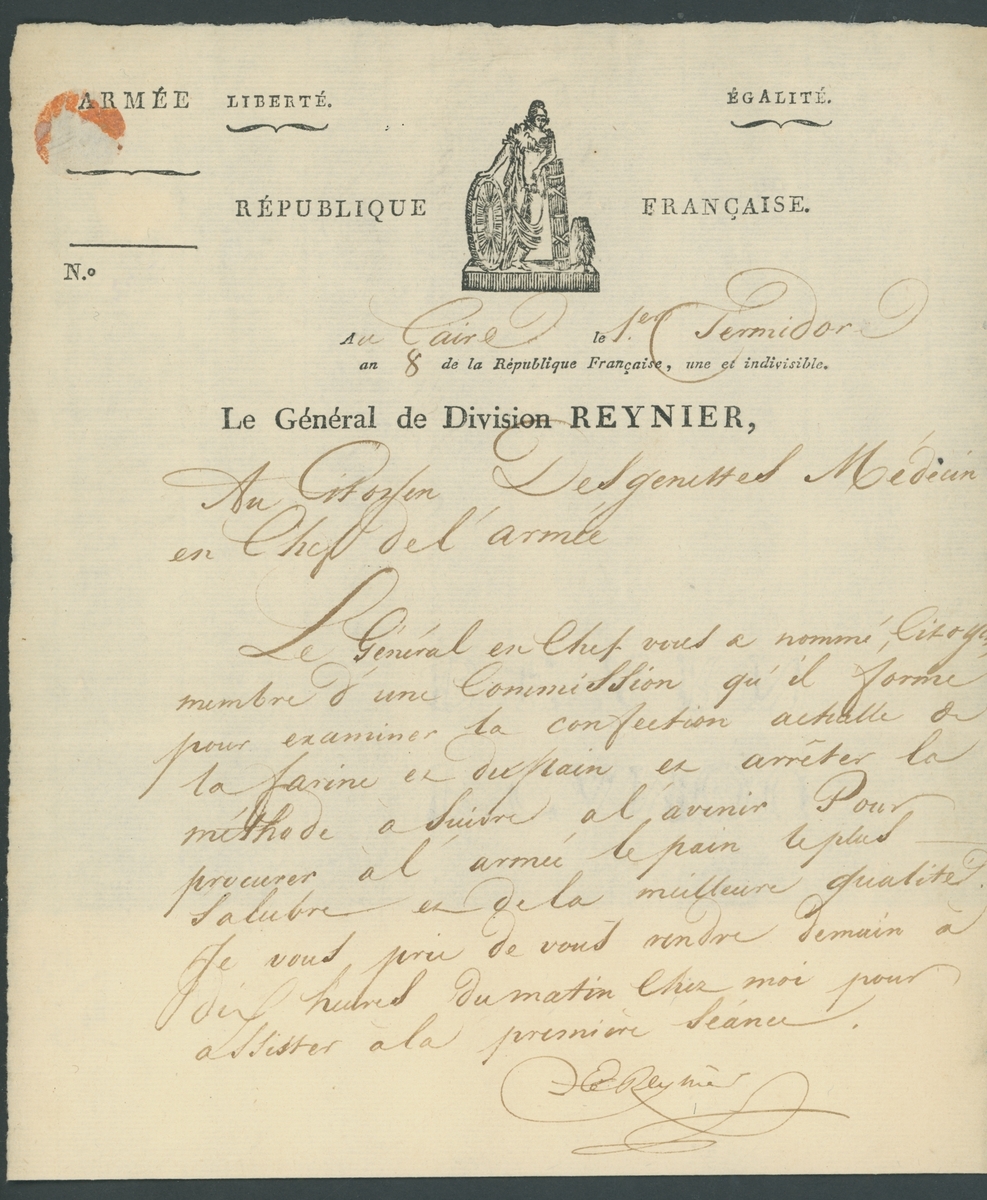 ARMÉE LIBERTÉ. ÉGALITÉ.
RÉPUBLIQUE FRANÇAISE.
N.o
Au Caire le 1.er Termidore
an 8 de la République Française, une et indivisible.
Le Général de Division REYNIER,
Au Citoyen Desgenettes Médecin
en Chef de l'armée
Le Général en Chef vous a nommé, Citoyen
membre d'une Commission qu'il forme
pour examiner la confection actuelle de
la farine et du pain et arrêter la
méthode a suivre a l'avenir Pour
procurer à l'armée le pain le plus
salubre et de la meilleure qualité.
Je vous prie de vous rendre demain à
dix heures du matin Chez moi pour
assister à la première séance.
Reynier